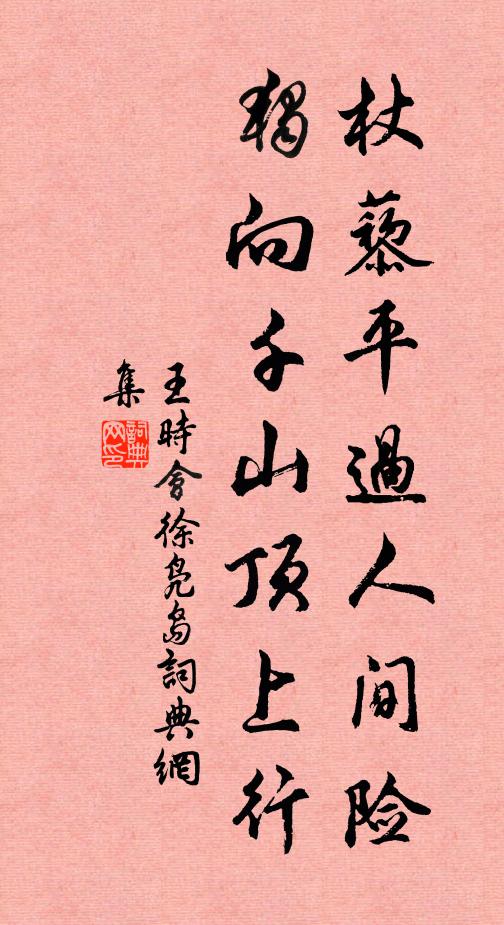 杖藜平過人间险
獨向千山顶上行
王時會徐凫岛詞典網
集
詞典
网印